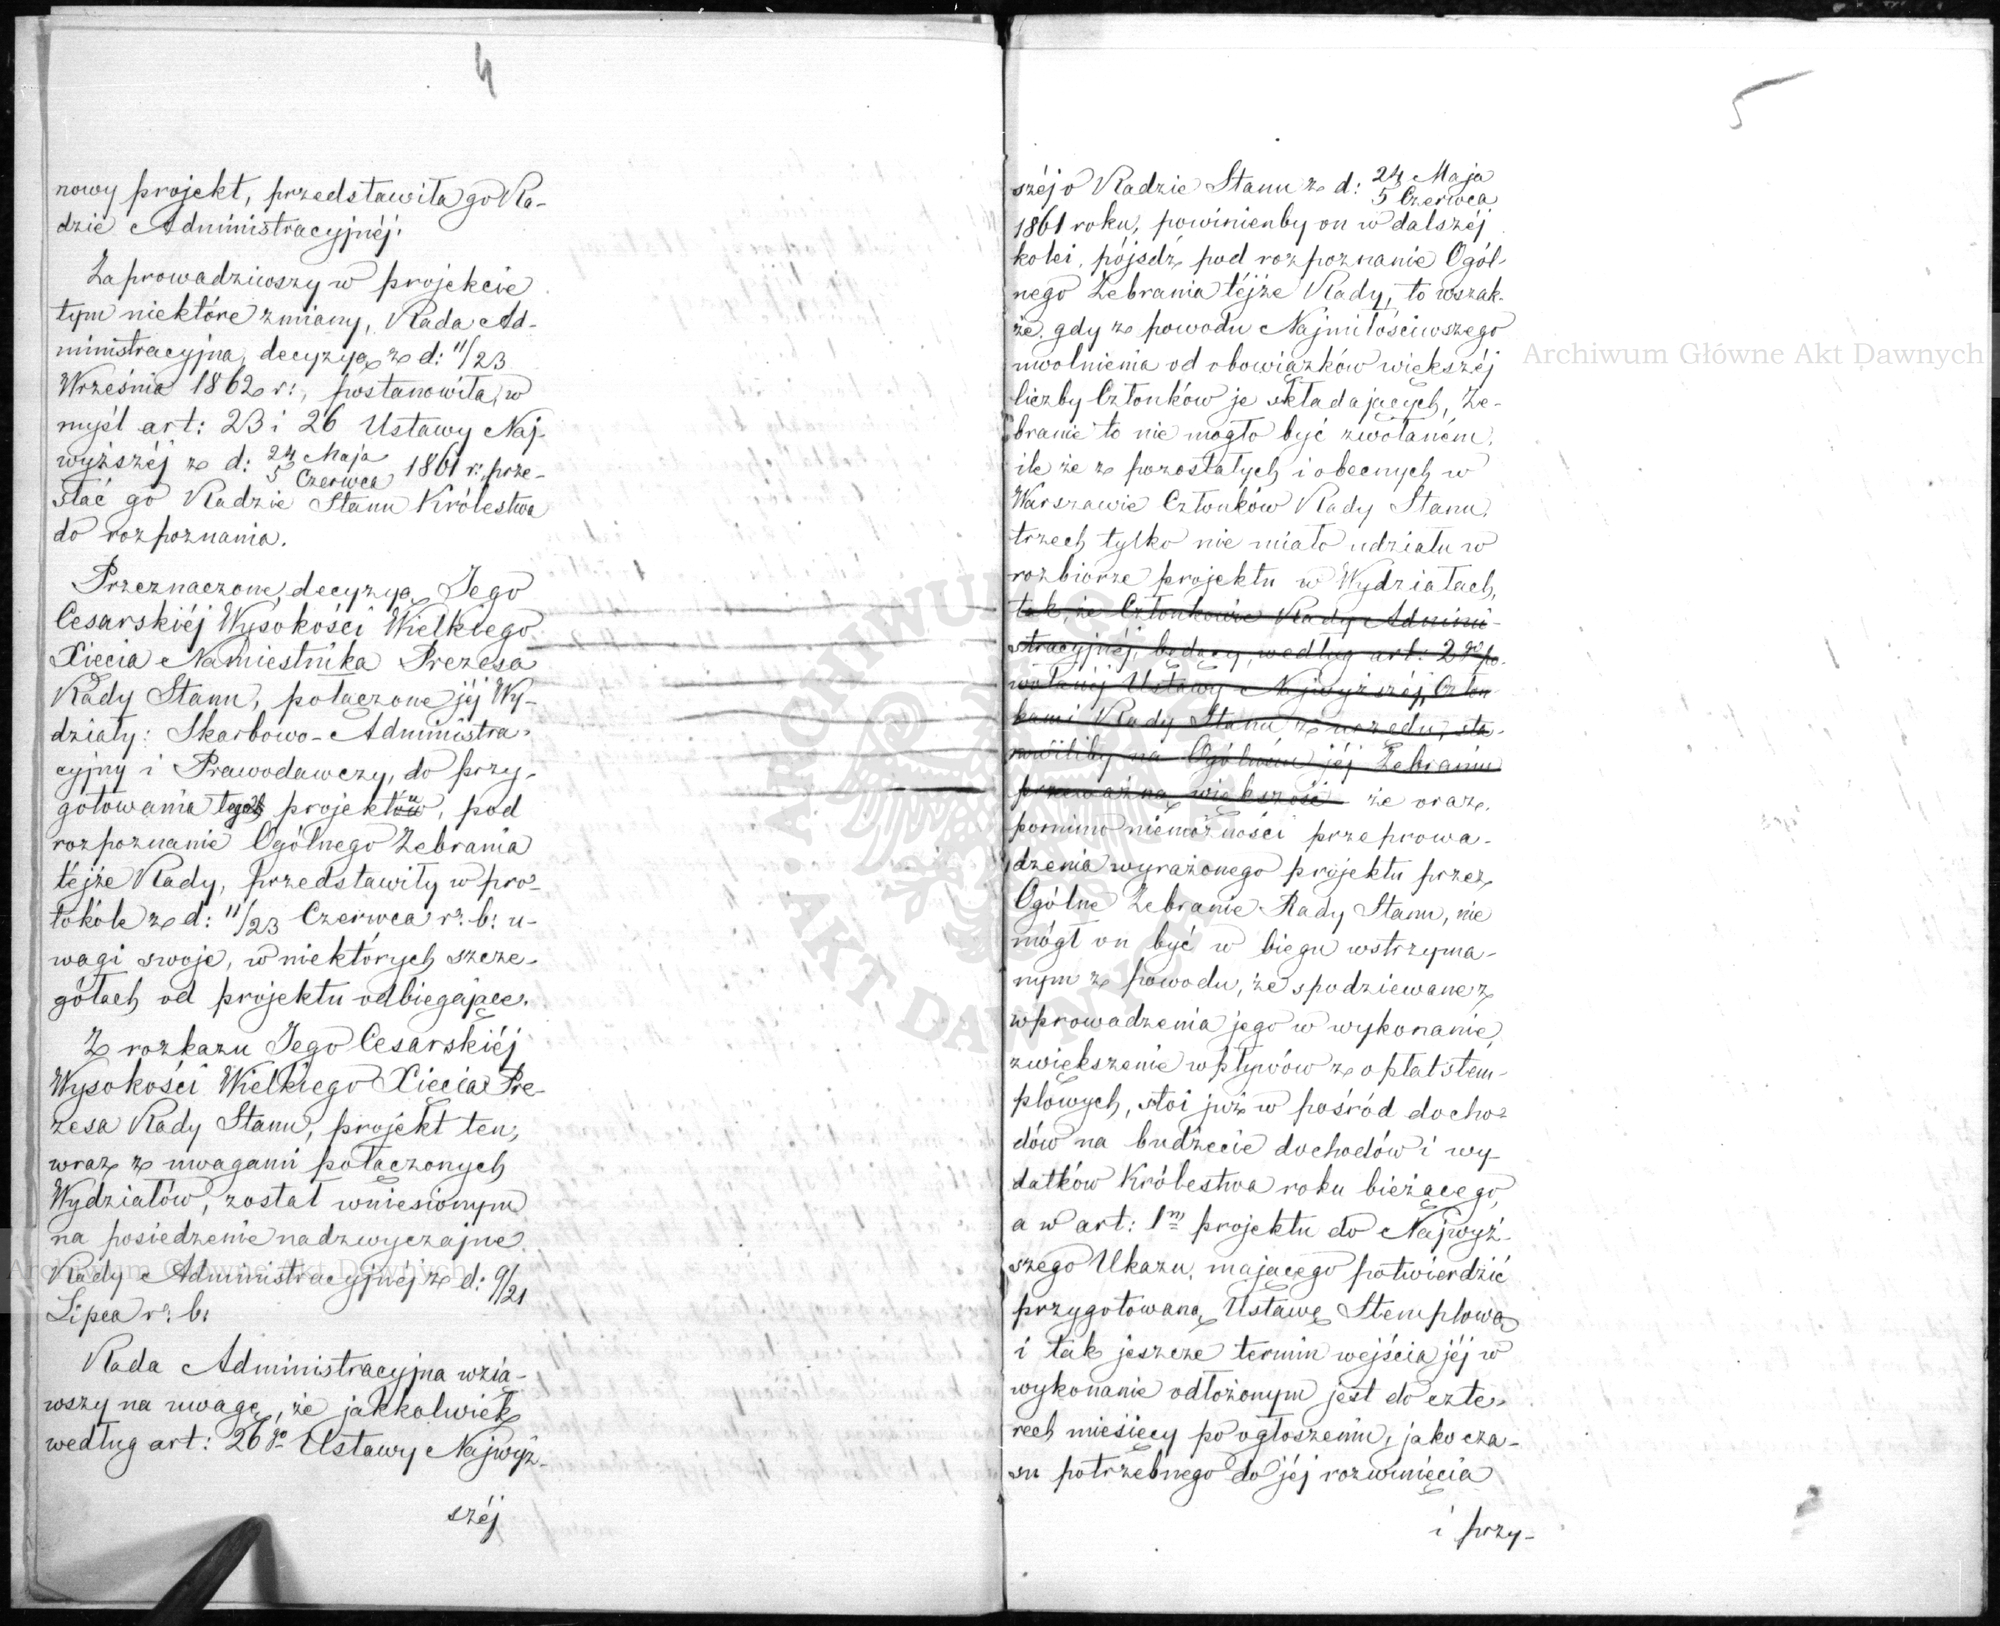 4
nowy projekt, przedstawiła go Ra-
dzie Administracyjnéj.
Zaprowadziwszy w projekcie
tym niektóre zmiany, Rada Ad-
ministracyjna, decyzyą z d: 11/23
Września 1862 r:, postanowiła, w
myśl art: 23 i 26 Ustawy Naj-
wyższéj z d: 24 Maja / 5 Czerwca 1861 r: prze-
słać go Radzie Stanu Królestwa
do rozpoznania.
Przeznaczone, decyzyą Jego
Cesarskiéj Wysokości Wielkiego
Xięcia Namiestnika Prezesa
Rady Stanu, połączone jéj Wy-
działy: Skarbowo-Administra-
cyjny i Prawodawczy, do przy-
gotowania tego projektu, pod
rozpoznanie Ogólnego Zebrania
téjże Rady, przedstawiły w pro-
tokóle z d: 11/23 Czerwca r: b: u-
wagi swoje, w niektórych szcze-
gółach od projektu odbiegające.
Z rozkazu Jego Cesarskiéj
Wysokości Wielkiego Xięcia Pre-
zesa Rady Stanu, projekt ten,
wraz z uwagami połączonych
Wydziałów, został wniesionym
na posiedzenie nadzwyczajne
Rady Administracyjnéj z d: 9/21
Lipca r: b:
Rada Administracyjna wzią-
wszy na uwagę, że jakkolwiek
według art: 26go Ustawy Najwyż-
széj
5
széj o Radzie Stanu z d: 24 Maja / 5 Czerwca
1861 roku, powinienby on w dalszéj
kolei, pójsdź pod rozpoznanie Ogól-
nego Zebrania téjże Rady, to wszak-
że, gdy z powodu Najmiłościwszego
uwolnienia od obowiązków większéj
liczby Członków je składających, Ze-
branie to nie mogło być zwołaném,
ile że z pozostałych i obecnych w
Warszawie Członków Rady Stanu,
trzech tylko nie miało udziału w
rozbiorze projektu w Wydziałach,
tak, że Członkowie Rady Admini-
stracyjnéj, będący, według art: 2go po-
wołanéj Ustawy Najwyższéj, Człon-
kami Rady Stanu z urzędu, sta-
nowiliby na Ogólném jéj Zebraniu
przeważną większość że oraz,
pomimo niemożności przeprowa-
dzenia wyrażonego projektu przez
Ogólne Zebranie Rady Stanu, nie
mógł on być w biegu wstrzyma-
nym z powodu, że spodziewane z
wprowadzenia jego w wykonanie,
zwiększenie wpływów z opłat stem-
plowych, stoi już w pośród docho-
dów na budżecie dochodów i wy-
datków Królestwa roku bieżącego,
a w art: 1m projektu do Najwyż-
szego Ukazu, mającego potwierdzić
przygotowaną Ustawę Stemplową
i tak jeszcze termin wejścia jéj w
wykonanie odłożonym jest do czte-
rech miesięcy po ogłoszeniu, jako cza-
su potrzebnego do jéj rozwinięcia
i przy-
Archiwum Główne Akt Dawnych
Archiwum Główne Akt Dawnych
ARCHIWUM GŁÓWNE AKT DAWNYCH